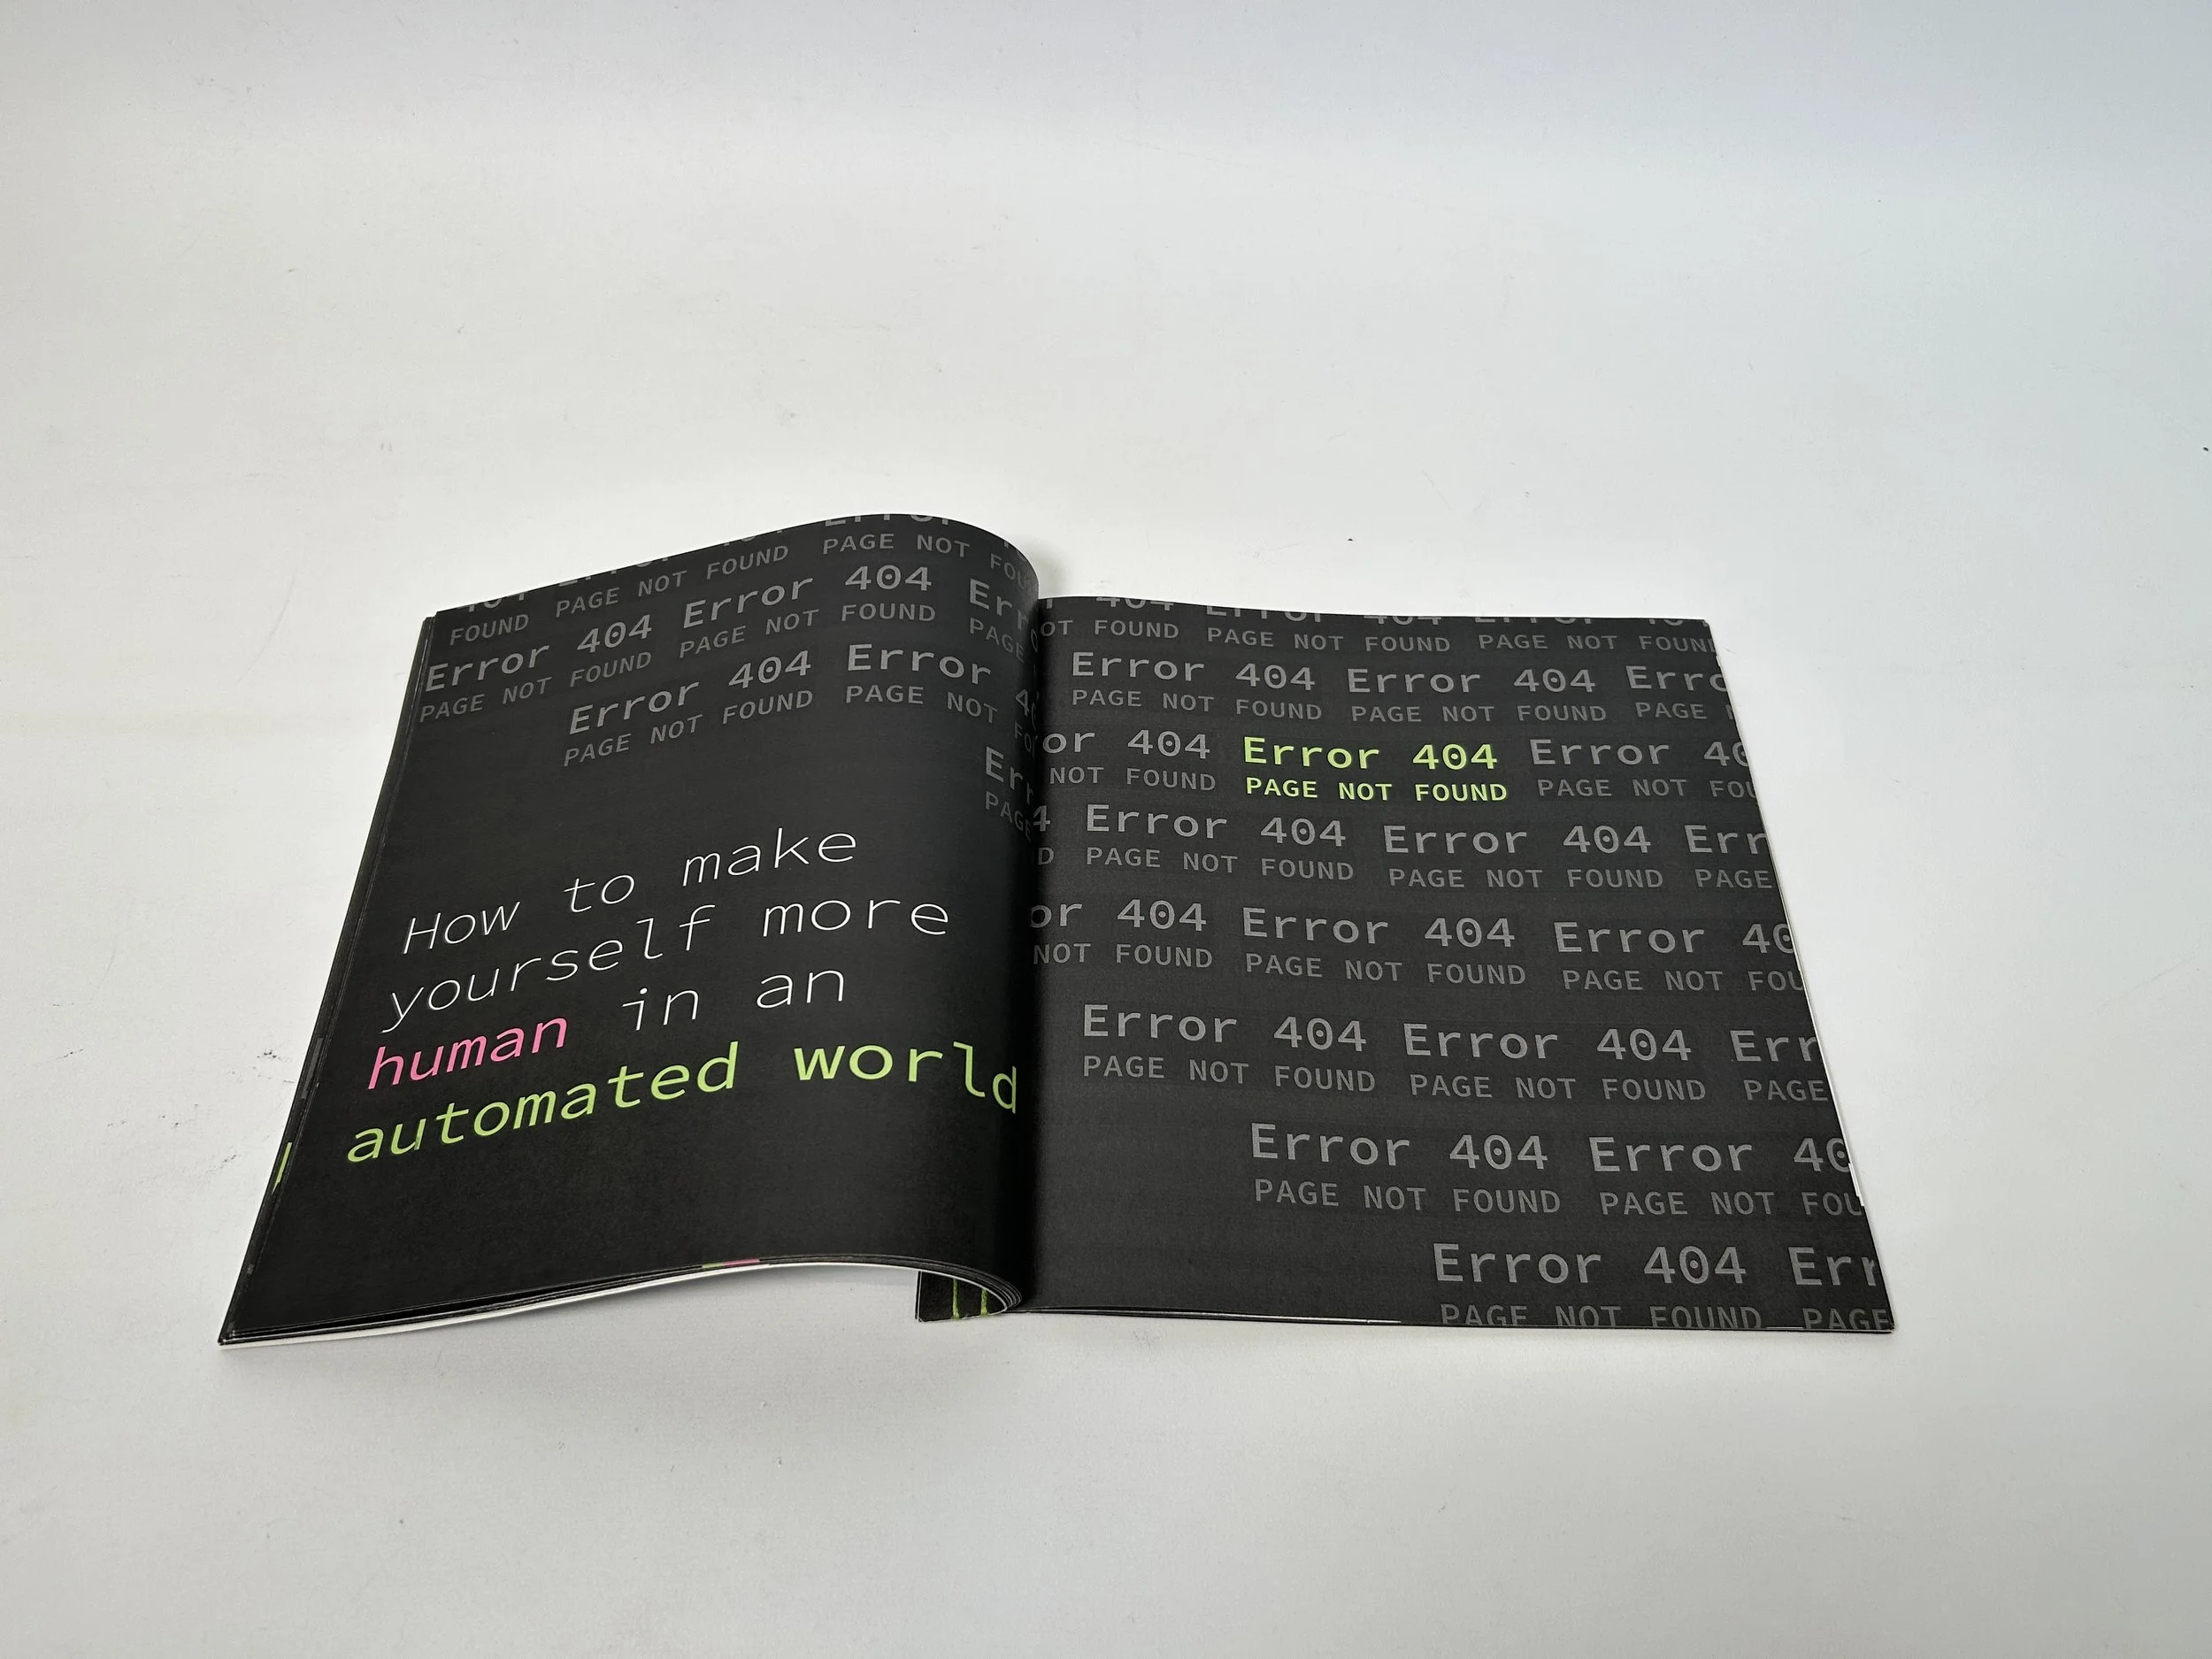 PAGE NOT
FOUND PAGE NOT FOUND
Error 404 Error 404
PAGE NOT FOUND PAGE NOT FOUND PAGE
Error 404 Error
PAGE NOT FOUND PAGE NOT
How to make
yourself more
human in an
automated world
404 Error 404 Error
FOUND PAGE NOT FOUND PAGE NOT FOUND
Error 404 Error 404 Erro
PAGE NOT FOUND PAGE NOT FOUND PAGE
or 404 Error 404 Error 40
NOT FOUND PAGE NOT FOUND PAGE NOT FOU
4 Error 404 Error 404 Err
D PAGE NOT FOUND PAGE NOT FOUND PAGE
or 404 Error 404 Error 40
NOT FOUND PAGE NOT FOUND PAGE NOT FOU
Error 404 Error 404 Err
PAGE NOT FOUND PAGE NOT FOUND PAGE
Error 404 Error 40
PAGE NOT FOUND PAGE NOT FOU
Error 404 Err
PAGE NOT FOUND PAGE